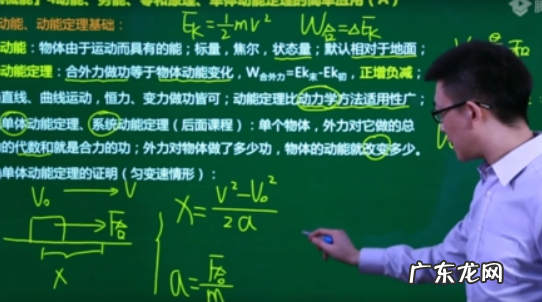 动能、势能、零和原理、单体动能定理的简单运用（A）
动能、动能定理基础：
E_K=½mv² W合=ΔE_K
动能：物体由于运动而具有的能；标量，焦尔，状态量；默认相对于地面；
动能定理：合外力做功等于物体动能变化，W合外力=Ek末-Ek初，正增负减；
直线、曲线运动，恒力、变力做功皆可；动能定理比动力学方法适用性广；
单体动能定理、系统动能定理（后面课程）：单个物体，外力对它做的总
的代数和就是合力的功；外力对物体做了多少功，物体的动能就改变多少。
单体动能定理的证明（匀变速情形）：
V₀ V
F合
X
X=(V²-V₀²)/2a
a=F合/m
和
广东龙网